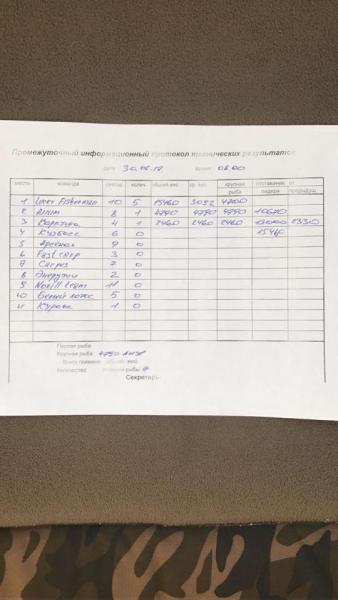 Промежуточный информационный протокол технических результатов
дата 30.06.18 время 08:00
место команда сектор колич. общий вес ср. вес крупная рыба отставание от лидера предыдущ.
1 Lovers Fisherman 10 5 15460 3092 4200
2 8 1 4790 4790 4790 10670
3 4 1 2460 2460 2460 13000 2330
4 Кузбасс 6 0 15460
5 Арсенал 9 0
6 Fast carp 3 0
7 7 0
8 Энергуши 2 0
9 Norill team 11 0
10 Белый лотос 5 0
11 1 0
Первая рыба
Крупная рыба 4790
Всего поймано (общий вес)
Количество рыбы
Секретарь